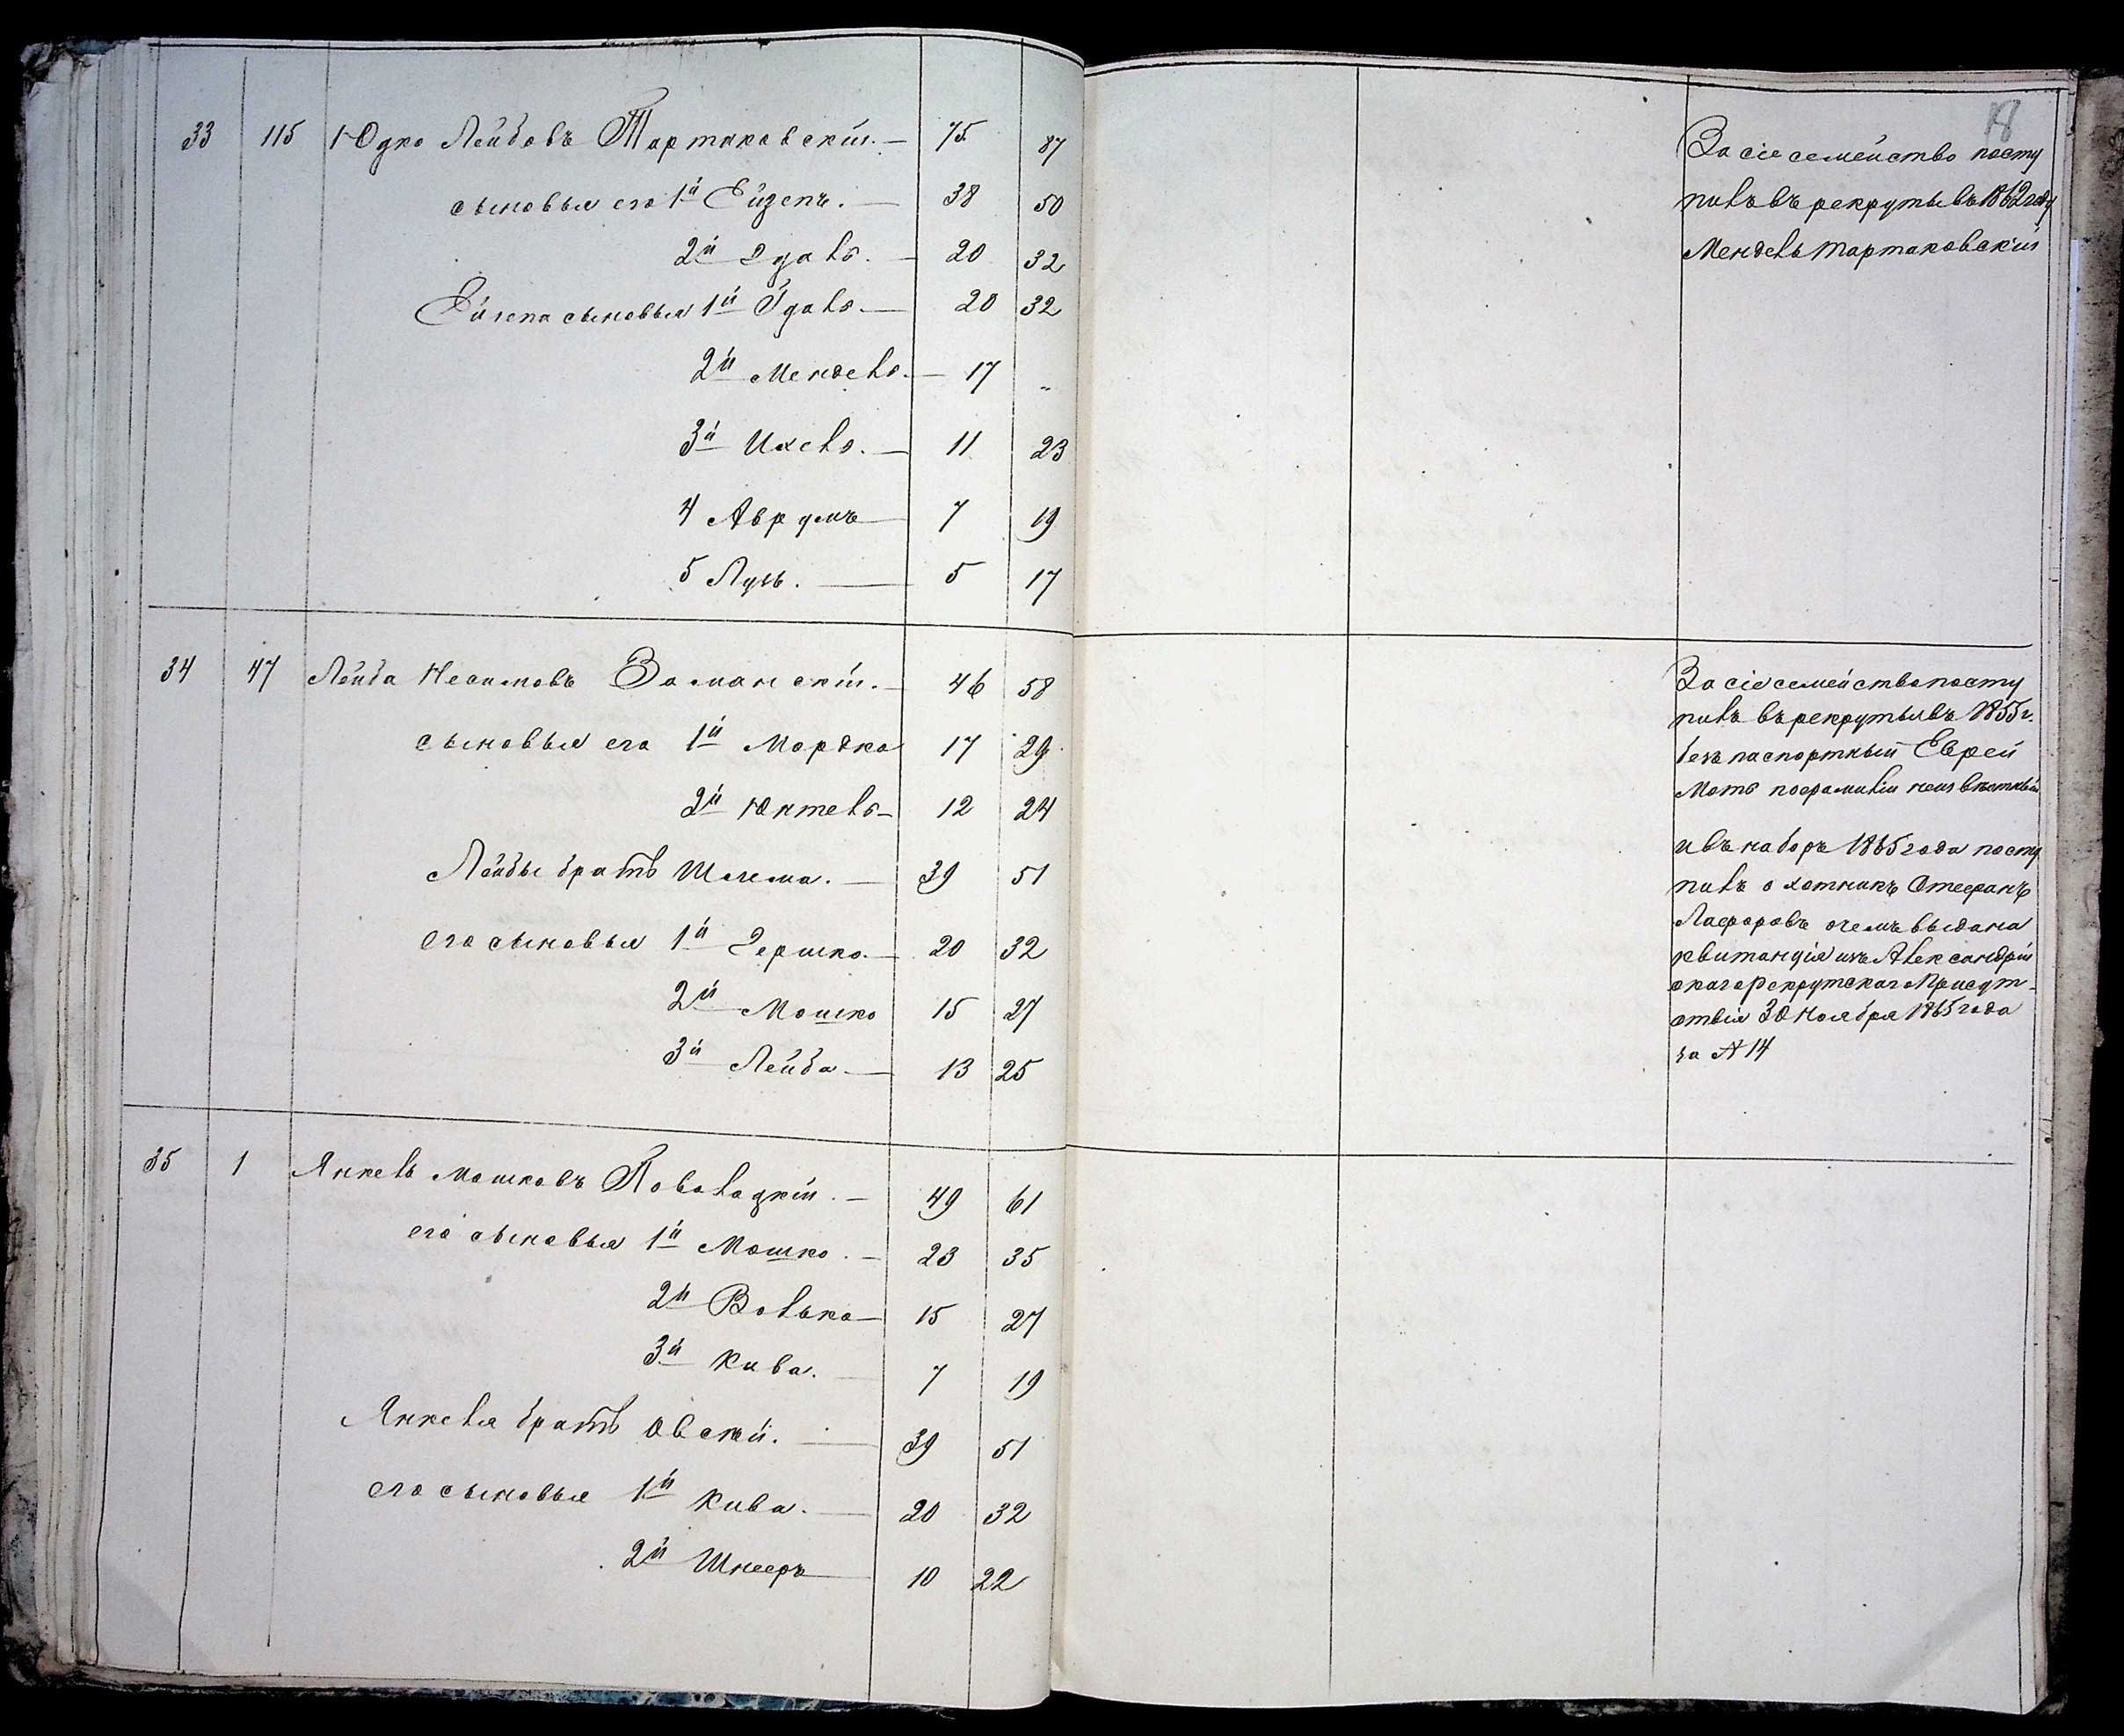 18
33 115 Юдко Лейбовъ Тартаковскій. — 75 87
сыновья его 1й Ейзепъ. — 38 50
2й Удаль. — 20 32
Ейзепа сыновья 1й Удаль. — 20 32
2й Мендель. — 17 „
3й Ихель. — 11 23
4 Аврумъ — 7 19
5 Лузь. — 5 17
За сіе семейство посту
пилъ въ рекруты въ 1862 году
Мендель Тартаковскій
34 47 Лейба Несимовъ Заманскій. — 46 58
сыновья его 1й Мордко 17 29
2й Юктель — 12 24
Лейбы братъ Шлема. — 39 51
его сыновья 1й Гершко. — 20 32
2й Мошко 15 27
3й Лейба — 13 25
За сіе семейство посту
пилъ въ рекруты въ 1855 г.
безъпаспортный Еврей
Моть пофамиліи неизвѣстный
и въ наборъ 1865 года посту
пилъ охотникъ Стефанъ
очемъ выдана
квитанція изъ Александрій
скаго Рекрутскаго Присут-
ствія 30 Ноября 1865 года
за № 14
35 1 Янкель Мошковъ Поволацкій. — 49 61
его сыновья 1й Мошко. — 23 35
2й Волько — 15 27
3й Кива. — 7 19
Янкеля братъ Овсѣй. — 39 51
его сыновья 1й Кива. — 20 32
2й Шнееръ — 10 22